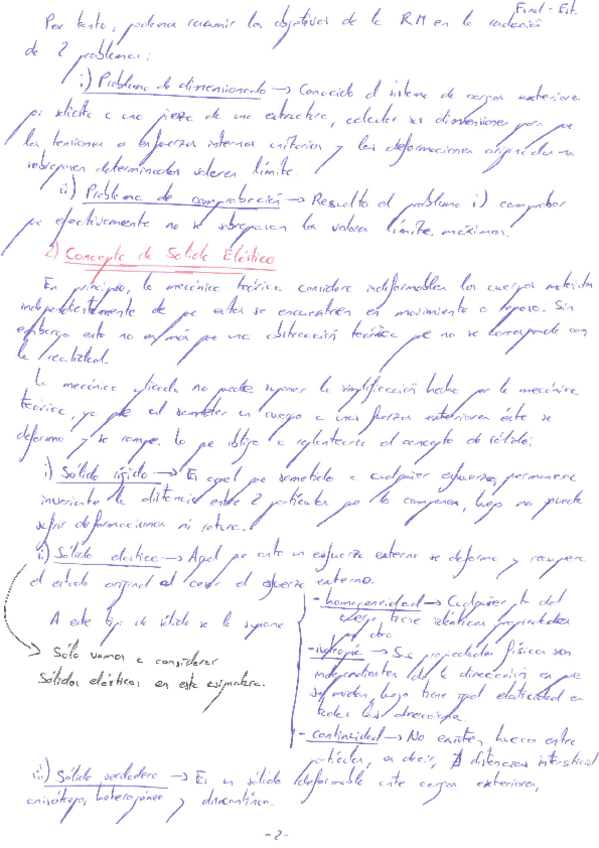 Fund - Est.
Por tanto, podemos resumir los objetivos de la RM en la resolución
de 2 problemas:
i) Problema de dimensionado → Conocido el sistema de cargas exteriores
que solicita a una pieza de una estructura, calcular sus dimensiones para que
las tensiones o esfuerzos internos unitarios y las deformaciones originadas no
sobrepasen determinados valores límite.
ii) Problema de comprobación → Resuelto el problema i) comprobar
que efectivamente no se sobrepasan los valores límite máximos.
2) Concepto de Sólido Elástico
En principio, la mecánica teórica considera indeformables los cuerpos materiales
independientemente de que estos se encuentren en movimiento o reposo. Sin
embargo esto no es más que una abstracción teórica que no se corresponde con
la realidad.
La mecánica aplicada no puede suponer la simplificación hecha por la mecánica
teórica, ya que al someter un cuerpo a unas fuerzas exteriores éste se
deforma y se rompe. Lo que obliga a replantearse el concepto de sólido:
i) Sólido rígido → Es aquel que sometido a cualquier esfuerzo, permanece
invariante la distancia entre 2 partículas que lo componen, luego no puede
sufrir deformaciones ni rotura.
ii) Sólido elástico → Aquel que ante un esfuerzo externo se deforma y recupera
el estado original al cesar el esfuerzo externo.
A este tipo de sólido se le supone
- homogeneidad → Cualquier pto del
cuerpo tiene idénticas propiedades
que otro
- isotropía → Sus propiedades físicas son
independientes de la dirección en que
se midan, luego tiene igual elasticidad en
todas las direcciones.
- continuidad → No existen huecos entre
partículas, es decir, ∄ distancias intersticial
Sólo vamos a considerar
Sólidos elásticos en esta asignatura.
iii) Sólido verdadero → Es un sólido deformable ante cargas exteriores,
anisótropo, heterogéneo y discontinuo.
-2-